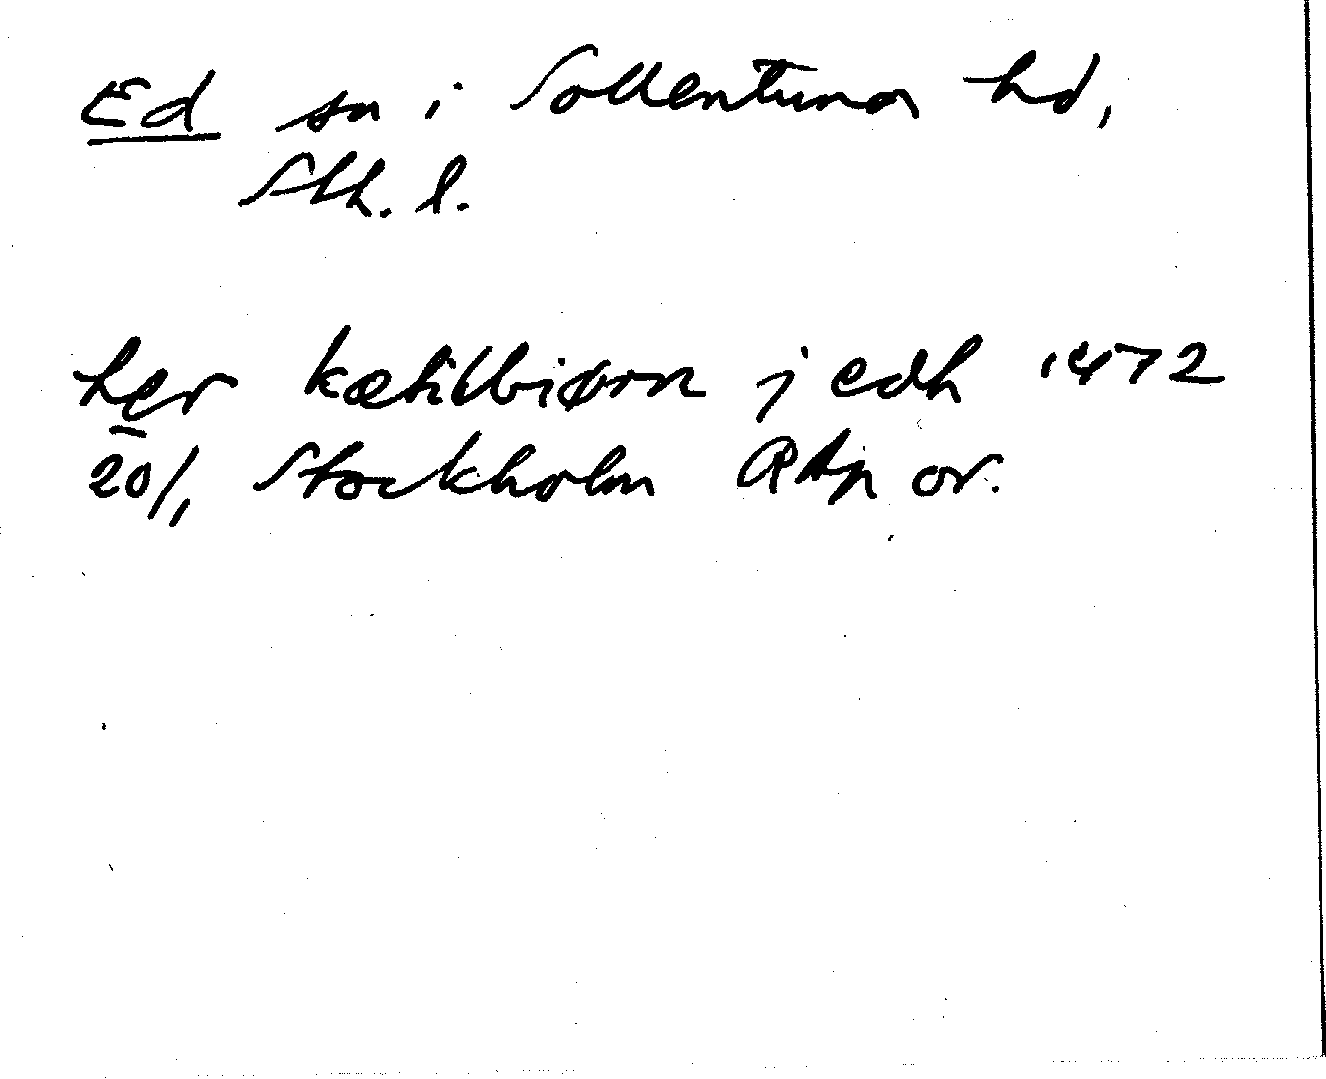 Ed sn i Sollentuna hd,
Sth. l.
her kætilbiørn j edh 1472
20/1 Stockholm RAp or.